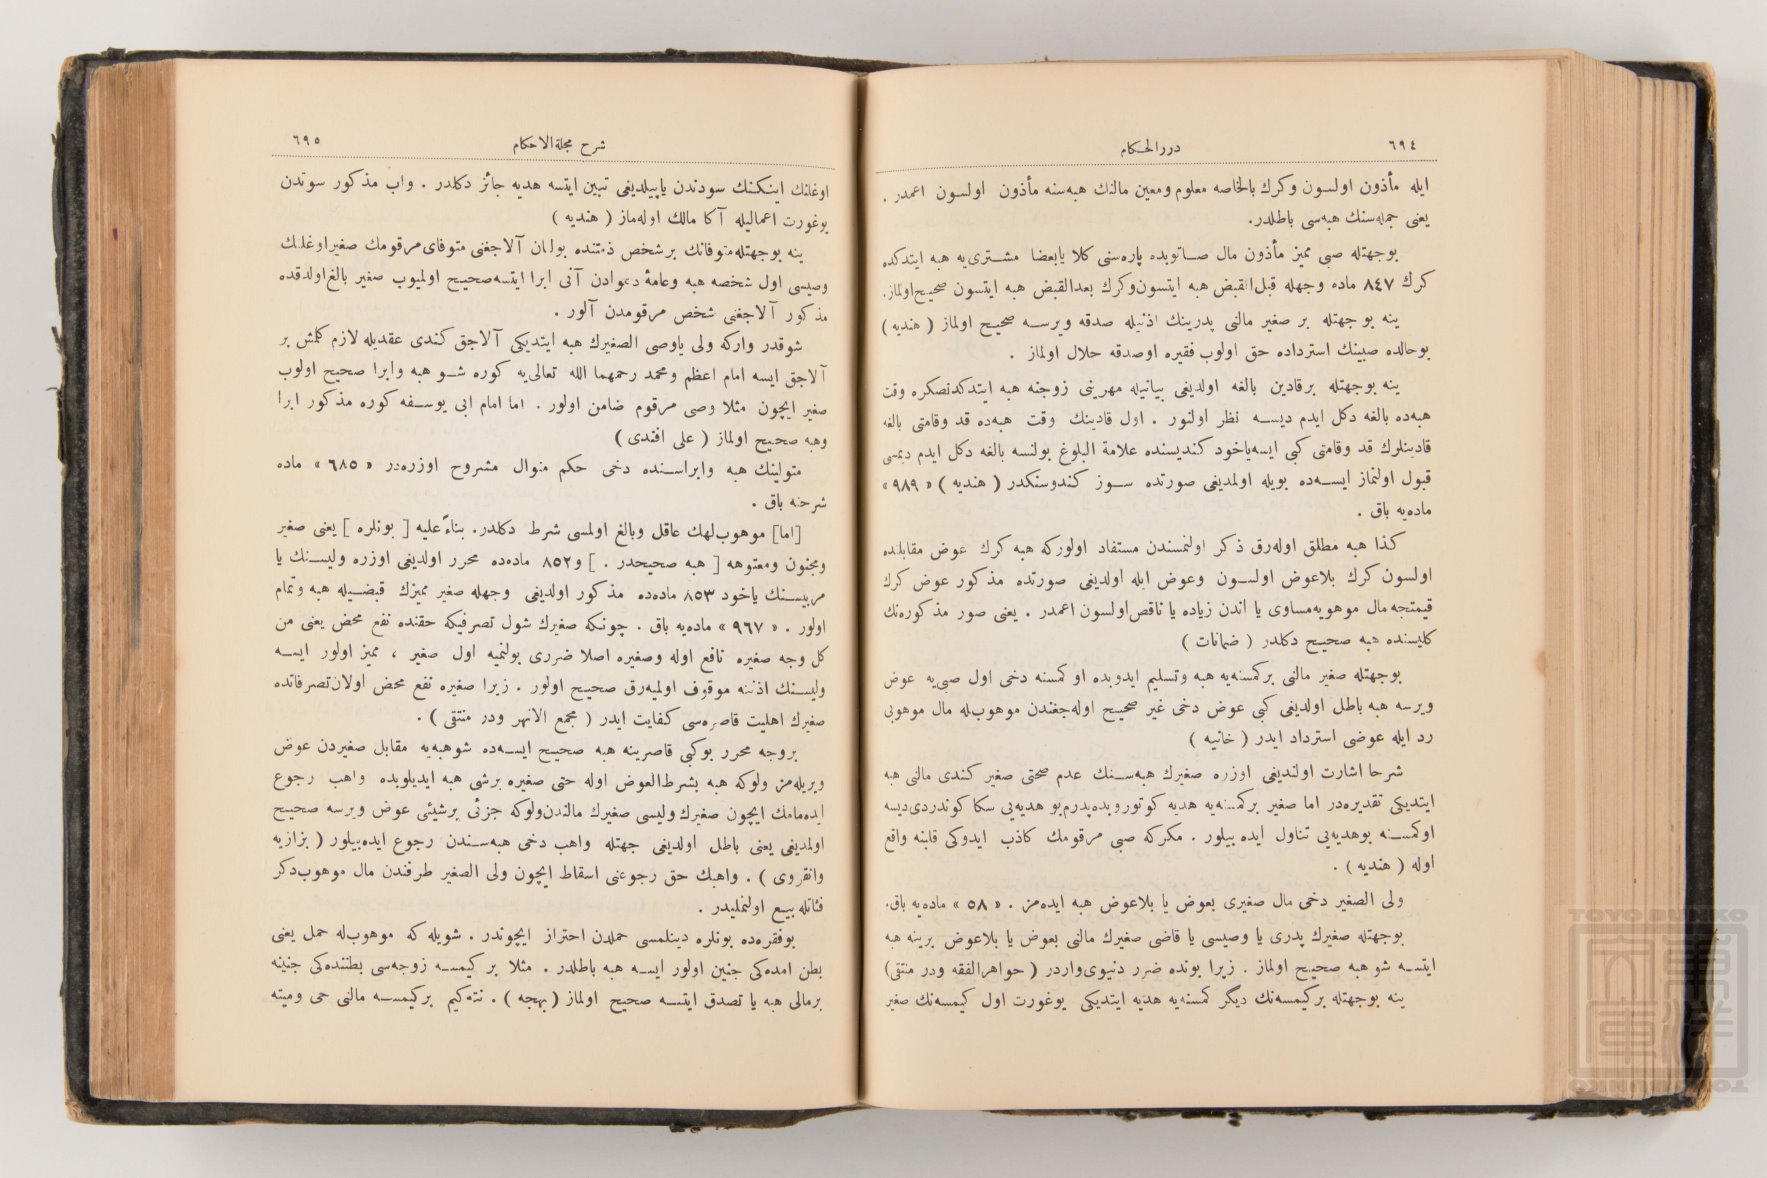 ٦٩٤
دررالحکام
ایله مأذون اولسون وکرك بالخاصه معلوم ومعین مالنك هبه‌سنه مأذون اولسون اعمدر .
یعنی جمله‌سنك هبه‌سی باطلدر.
بوجهتله صبی ممیز مأذون مال صاتوبده پاره‌سنی کلا یابعضا مشتری‌یه هبه ایتدکده
کرك ٨٤٧ ماده وجهله قبل‌القبض هبه ایتسون‌وکرك بعدالقبض هبه ایتسون صحیح‌اولماز.
ینه بوجهتله بر صغیر مالنی پدرینك اذنیله صدقه ویرسه صحیح اولماز ( هندیه )
بوحالده صبینك استرداده حق اولوب فقیره اوصدقه حلال اولماز .
ینه بوجهتله برقادین بالغه اولدیغی بیانیله مهرینی زوجنه هبه ایتدکدنصکره وقت
هبه‌ده بالغه دکل ایدم دیسه نظر اولنور . اول قادینك وقت هبه‌ده قد وقامتی بالغه
قادینلرك قد وقامتی کبی ایسه‌یاخود کندیسنده علامة البلوغ بولنسه بالغه دکل ایدم دیمسی
قبول اولنماز ایسه‌ده بویله اولمدیغی صورتده سوز کندوسنکدر ( هندیه ) « ٩٨٩ »
ماده‌یه باق .
کذا هبه مطلق اوله‌رق ذکر اولنمسندن مستفاد اولورکه هبه کرك عوض مقابلنده
اولسون کرك بلاعوض اولسون وعوض ایله اولدیغی صورتده مذکور عوض کرك
قیمتجه مال موهوبه‌مساوی یا اندن زیاده یا ناقص‌اولسون اعمدر . یعنی صور مذکوره‌نك
کلیسنده هبه صحیح دکلدر ( ضمانات )
بوجهتله صغیر مالنی برکمسنه‌یه هبه وتسلیم ایدوبده او کمسنه دخی اول صبی‌یه عوض
ویرسه هبه باطل اولدیغی کبی عوض دخی غیر صحیح اوله‌جغندن موهوب‌له مال موهوبی
رد ایله عوضی استرداد ایدر ( خانیه )
شرحا اشارت اولندیغی اوزره صغیرك هبه‌سنك عدم صحتی صغیر کندی مالنی هبه
ایتدیکی تقدیره‌در اما صغیر برکمسنه‌یه هدیه کوتوروبده‌پدرم‌بو هدیه‌یی سکا کوندردی‌دیسه
اوکمسنه بوهدیه‌یی تناول ایده بیلور . مکرکه صبی مرقومك کاذب ایدوکی قلبنه واقع
اوله ( هندیه ) .
ولی الصغیر دخی مال صغیری بعوض یا بلاعوض هبه ایده‌مز . « ٥٨ » ماده‌یه باق.
بوجهتله صغیرك پدری یا وصیسی یا قاضی صغیرك مالنی بعوض یا بلاعوض برینه هبه
ایتسه شو هبه صحیح اولماز . زیرا بونده ضرر دنیوی‌واردر ( جواهرالفقه ودر منتقی)
ینه بوجهتله برکیمسه‌نك دیگر کمسنه‌یه هدیه ایتدیکی یوغورت اول کیمسه‌نك صغیر
شرح مجلة‌الاحکام
٦٩٥
اوغلنك اینکنك سودندن یاپیلدیغی تبین ایتسه هدیه جائز دکلدر . واب مذکور سوتدن
یوغورت اعمالیله آکا مالك اوله‌ماز ( هندیه )
ینه بوجهتله‌متوفانك برشخص ذمتنده بولنان آلاجغنی متوفای‌مرقومك صغیراوغلنك
وصیسی اول شخصه هبه وعامهٔ دعوادن آنی ابرا ایتسه‌صحیح اولمیوب صغیر بالغ‌اولدقده
مذکور آلاجغنی شخص مرقومدن آلور .
شوقدر وارکه ولی یاوصی الصغیرك هبه ایتدیکی آلاجق کندی عقدیله لازم کلمش بر
آلاجق ایسه امام اعظم ومحمد رحمهما الله تعالی‌یه کوره شو هبه وابرا صحیح اولوب
صغیر ایچون مثلا وصی مرقوم ضامن اولور . اما امام ابی یوسفه کوره مذکور ابرا
وهبه صحیح اولماز ( علی افندی )
متولینك هبه وابراسنده دخی حکم منوال مشروح اوزره‌در « ٦٨٥ » ماده
شرحنه باق .
[اما] موهوب‌لهك عاقل وبالغ اولمسی شرط دکلدر. بناءً علیه [ بونلره ] یعنی صغیر
ومجنون ومعتوهه [ هبه صحیحدر . ] و٨٥٢ ماده‌ده محرر اولدیغی اوزره ولیسنك یا
مربیسنك یاخود ٨٥٣ ماده‌ده مذکور اولدیغی وجهله صغیر ممیزك قبضیله هبه وتمام
اولور . « ٩٦٧ » ماده‌یه باق . چونکه صغیرك شول تصرفیکه حقنده نفع محض یعنی من
کل وجه صغیره نافع اوله وصغیره اصلا ضرری بولنمیه اول صغیر ، ممیز اولور ایسه
ولیسنك اذننه موقوف اولمیه‌رق صحیح اولور . زیرا صغیره نفع محض اولان‌تصرفاتده
صغیرك اهلیت قاصره‌سی کفایت ایدر ( مجمع الانهر ودر منتقی ) .
بروجه محرر بوکبی قاصرینه هبه صحیح ایسه‌ده شوهبه‌یه مقابل صغیردن عوض
ویریله‌مز ولوکه هبه بشرط‌العوض اوله حتی صغیره برشی هبه ایدیلوبده واهب رجوع
ایده‌مامك ایچون صغیرك ولیسی صغیرك مالندن‌ولوکه جزئی برشیئی عوض ویرسه صحیح
اولمدیغی یعنی باطل اولدیغی جهتله واهب دخی هبه‌سندن رجوع ایده‌بیلور ( بزازیه
وانقروی ) . واهبك حق رجوعنی اسقاط ایچون ولی الصغیر طرفندن مال موهوب‌دکر
فئاتله بیع اولنملیدر .
بوفقره‌ده بونلره دینلمسی حملدن احتراز ایچوندر . شویله که موهوب‌له حمل یعنی
بطن امده‌کی جنین اولور ایسه هبه باطلدر . مثلا بر کیمسه زوجه‌سی بطننده‌کی جنینه
برمالی هبه یا تصدق ایتسه صحیح اولماز ( بهجه ) . نته‌کیم برکیمسه مالنی حی ومیته
TOYO BUNKO